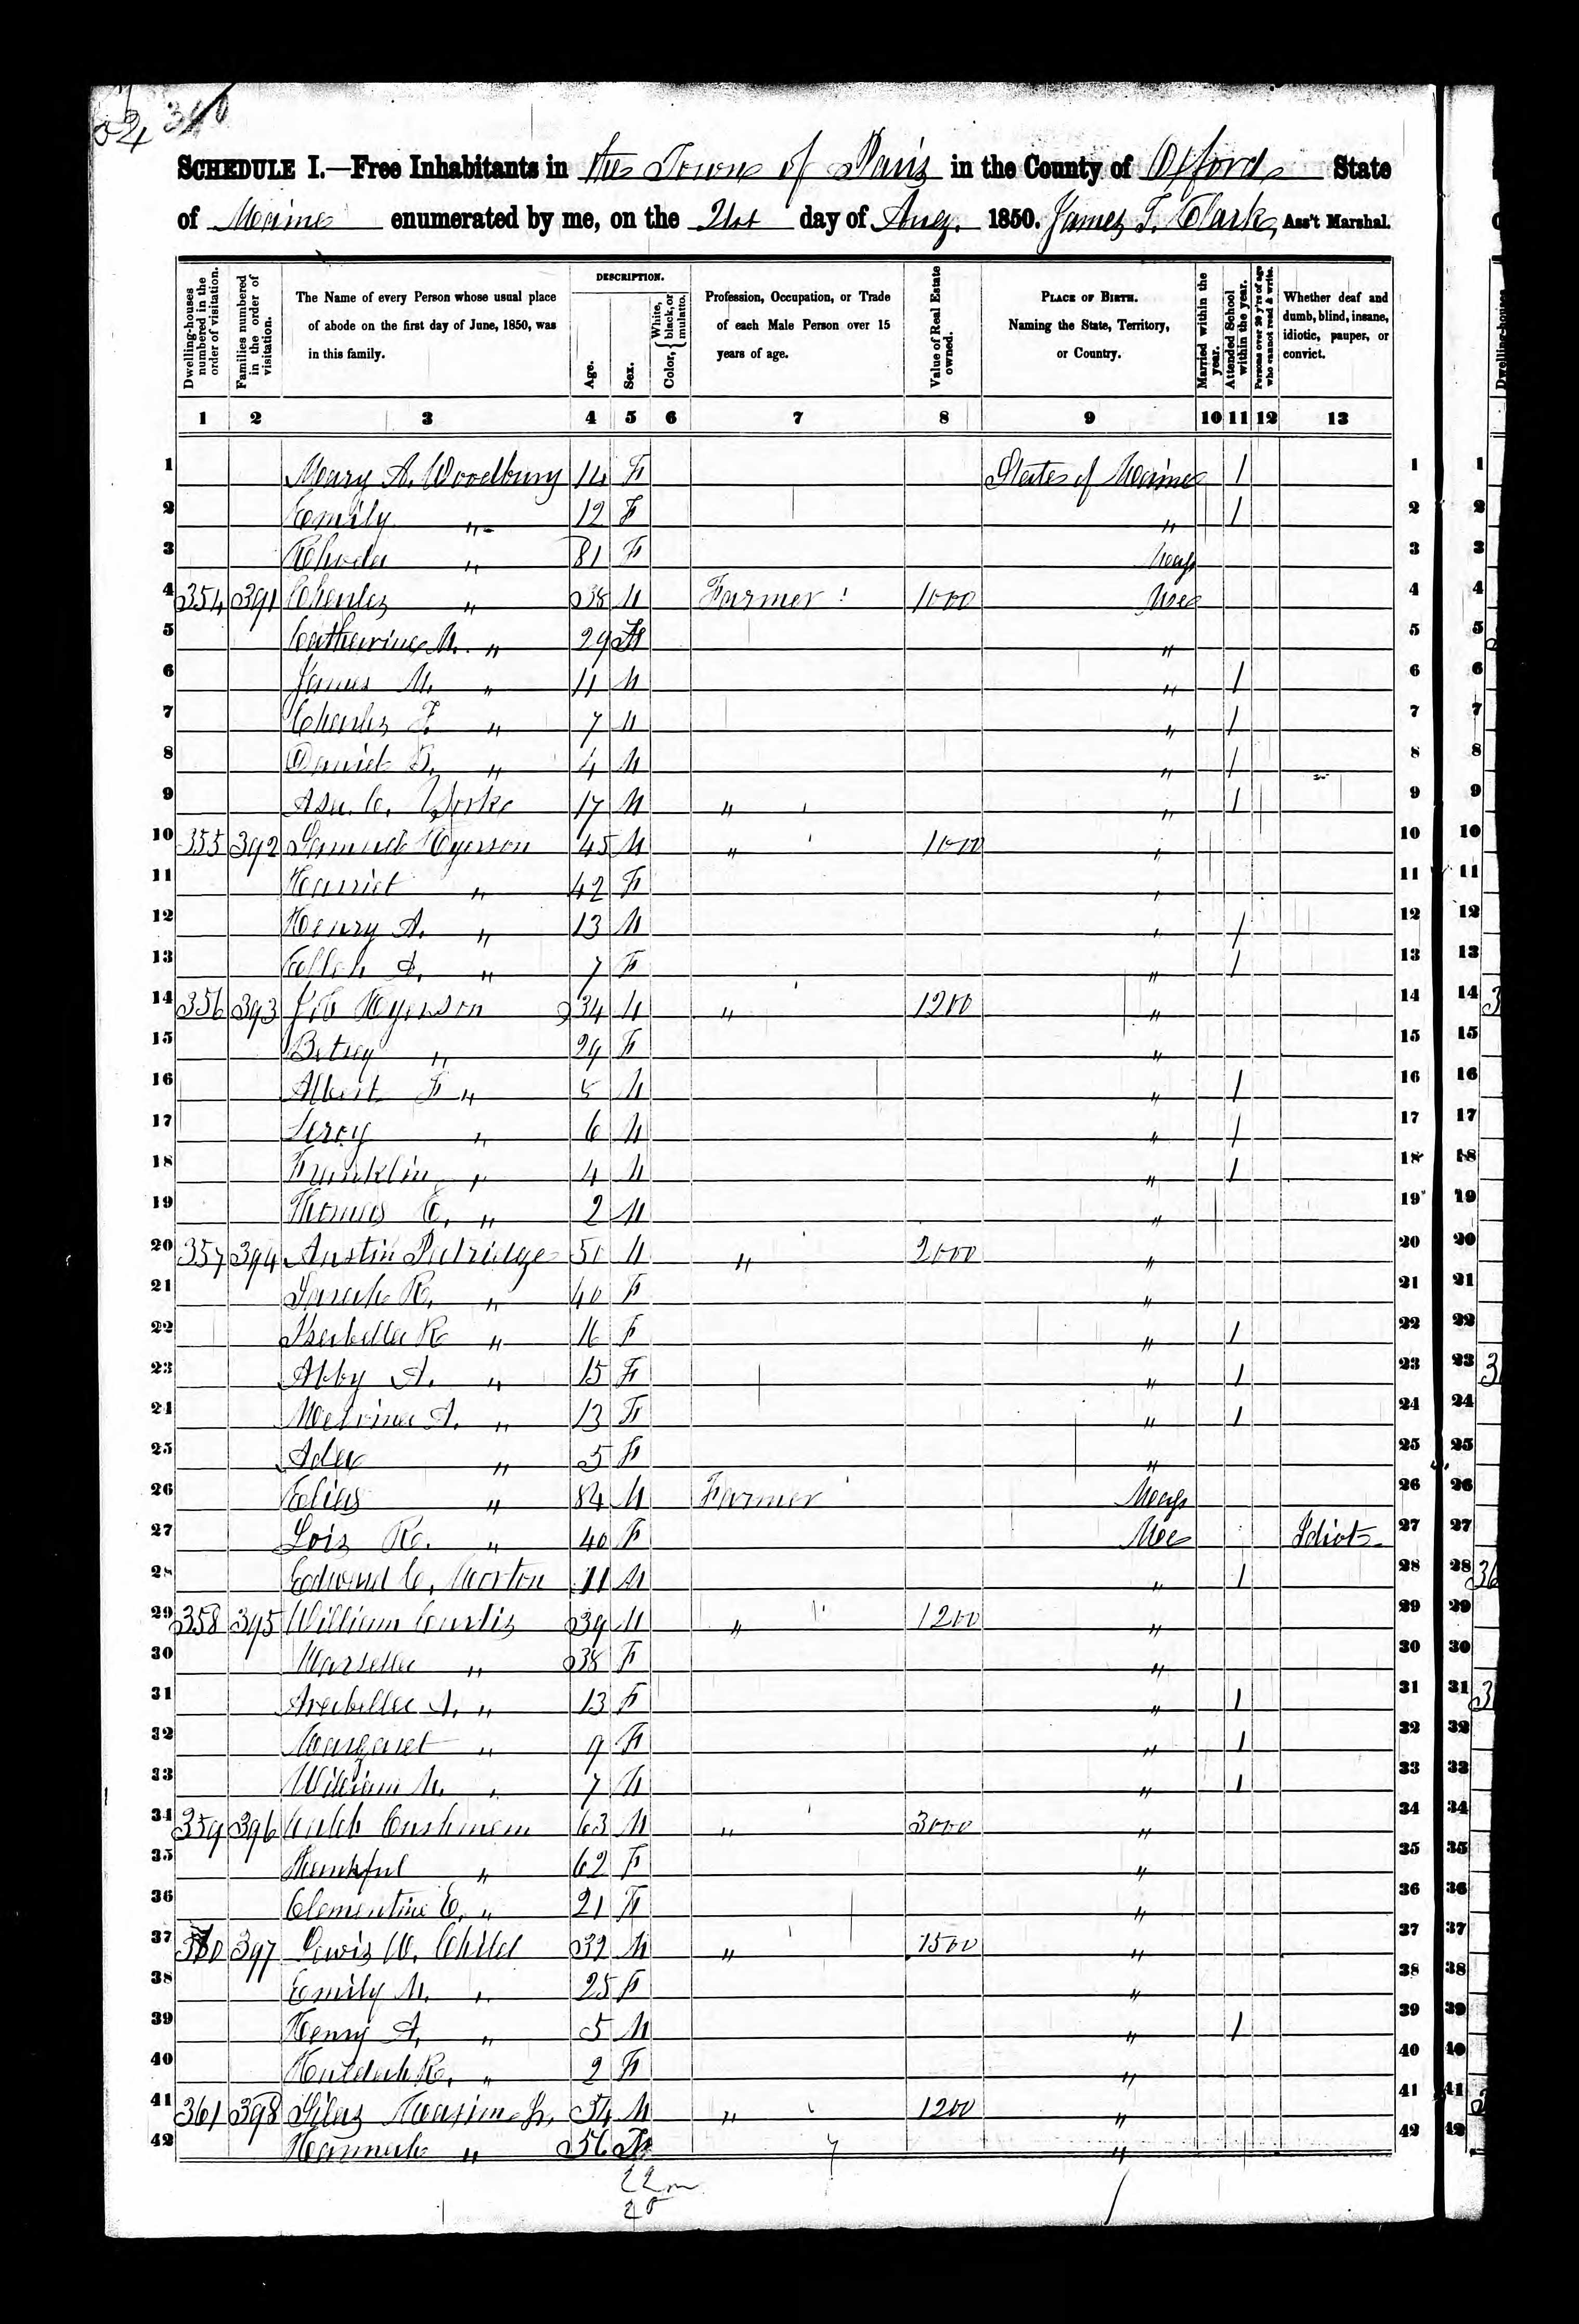 340
SCHEDULE I.—Free Inhabitants in the Town of Paris in the County of Oxford State
of Maine enumerated by me, on the 21st day of Aug. 1850. James T. Clark, Ass't Marshal.
Dwelling-houses numbered in the order of visitation.
Families numbered in the order of visitation.
The Name of every Person whose usual place of abode on the first day of June, 1850, was in this family.
DESCRIPTION.
Age.
Sex.
Color, { White, black, or mulatto.
Profession, Occupation, or Trade of each Male Person over 15 years of age.
Value of Real Estate owned.
PLACE OF BIRTH. Naming the State, Territory, or Country.
Married within the year.
Attended School within the year.
Persons over 20 y'rs of age who cannot read & write.
Whether deaf and dumb, blind, insane, idiotic, pauper, or convict.
1 2 3 4 5 6 7 8 9 10 11 12 13
1 Mary A. Woodbury 14 F State of Maine / 1
2 Emily " 12 F " / 2
3 Rhoda " 81 F Mass 3
4 354 391 Charles " 38 M Farmer 1000 Me 4
5 Catherine M. " 29 F " 5
6 James M. " 11 M " / 6
7 Charles F. " 7 M " / 7
8 Daniel B. " 4 M " / 8
9 Asa C. York 17 M " " / 9
10 355 392 Samuel Ryerson 45 M " 1000 " 10
11 Harriet " 42 F " 11
12 Henry A. " 13 M " / 12
13 Ellen A. " 7 F " / 13
14 356 393 Ryerson 34 M " 1200 " 14
15 Betsey " 29 F " 15
16 Albert F " 8 M " / 16
17 Leroy " 6 M " / 17
18 Franklin " 4 M " / 18
19 Thomas C. " 2 M " 19
20 357 394 Austin Patridge 50 M " 2000 " 20
21 Sarah R. " 40 F " 21
22 Isabella R " 16 F " / 22
23 Abby A. " 15 F " / 23
24 Melvina A. " 13 F " / 24
25 Ada " 5 F " 25
26 Elias " 84 M Farmer Mass 26
27 Lois R. " 40 F Me Idiot 27
28 Edward C. Morton 11 M " / 28
29 358 395 William Curtis 39 M " 1200 " 29
30 " 38 F " 30
31 Arabella A. " 13 F " / 31
32 Margaret " 9 F " / 32
33 William M. " 7 M " / 33
34 359 396 Caleb Cushman 63 M " 3000 " 34
35 Thankful " 62 F " 35
36 Clementine E. " 21 F " 36
37 360 397 Lewis W. Child 32 M " 1500 " 37
38 Emily M. " 25 F " 38
39 Henry A. " 5 M " / 39
40 Huldah R. " 2 F " 40
41 361 398 Silas Maxim Jr. 54 M " 1200 " 41
42 Hannah " 56 F " 42
22 m
20